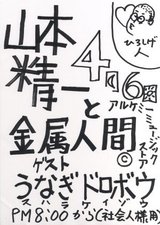 ひろしげ
人
山本
精一
と
4月6
アルケミーミュージックストア
金属人間©
ゲスト
うなぎドロボウ
スハラケイゾウ
PM8:00から(社会人様用)